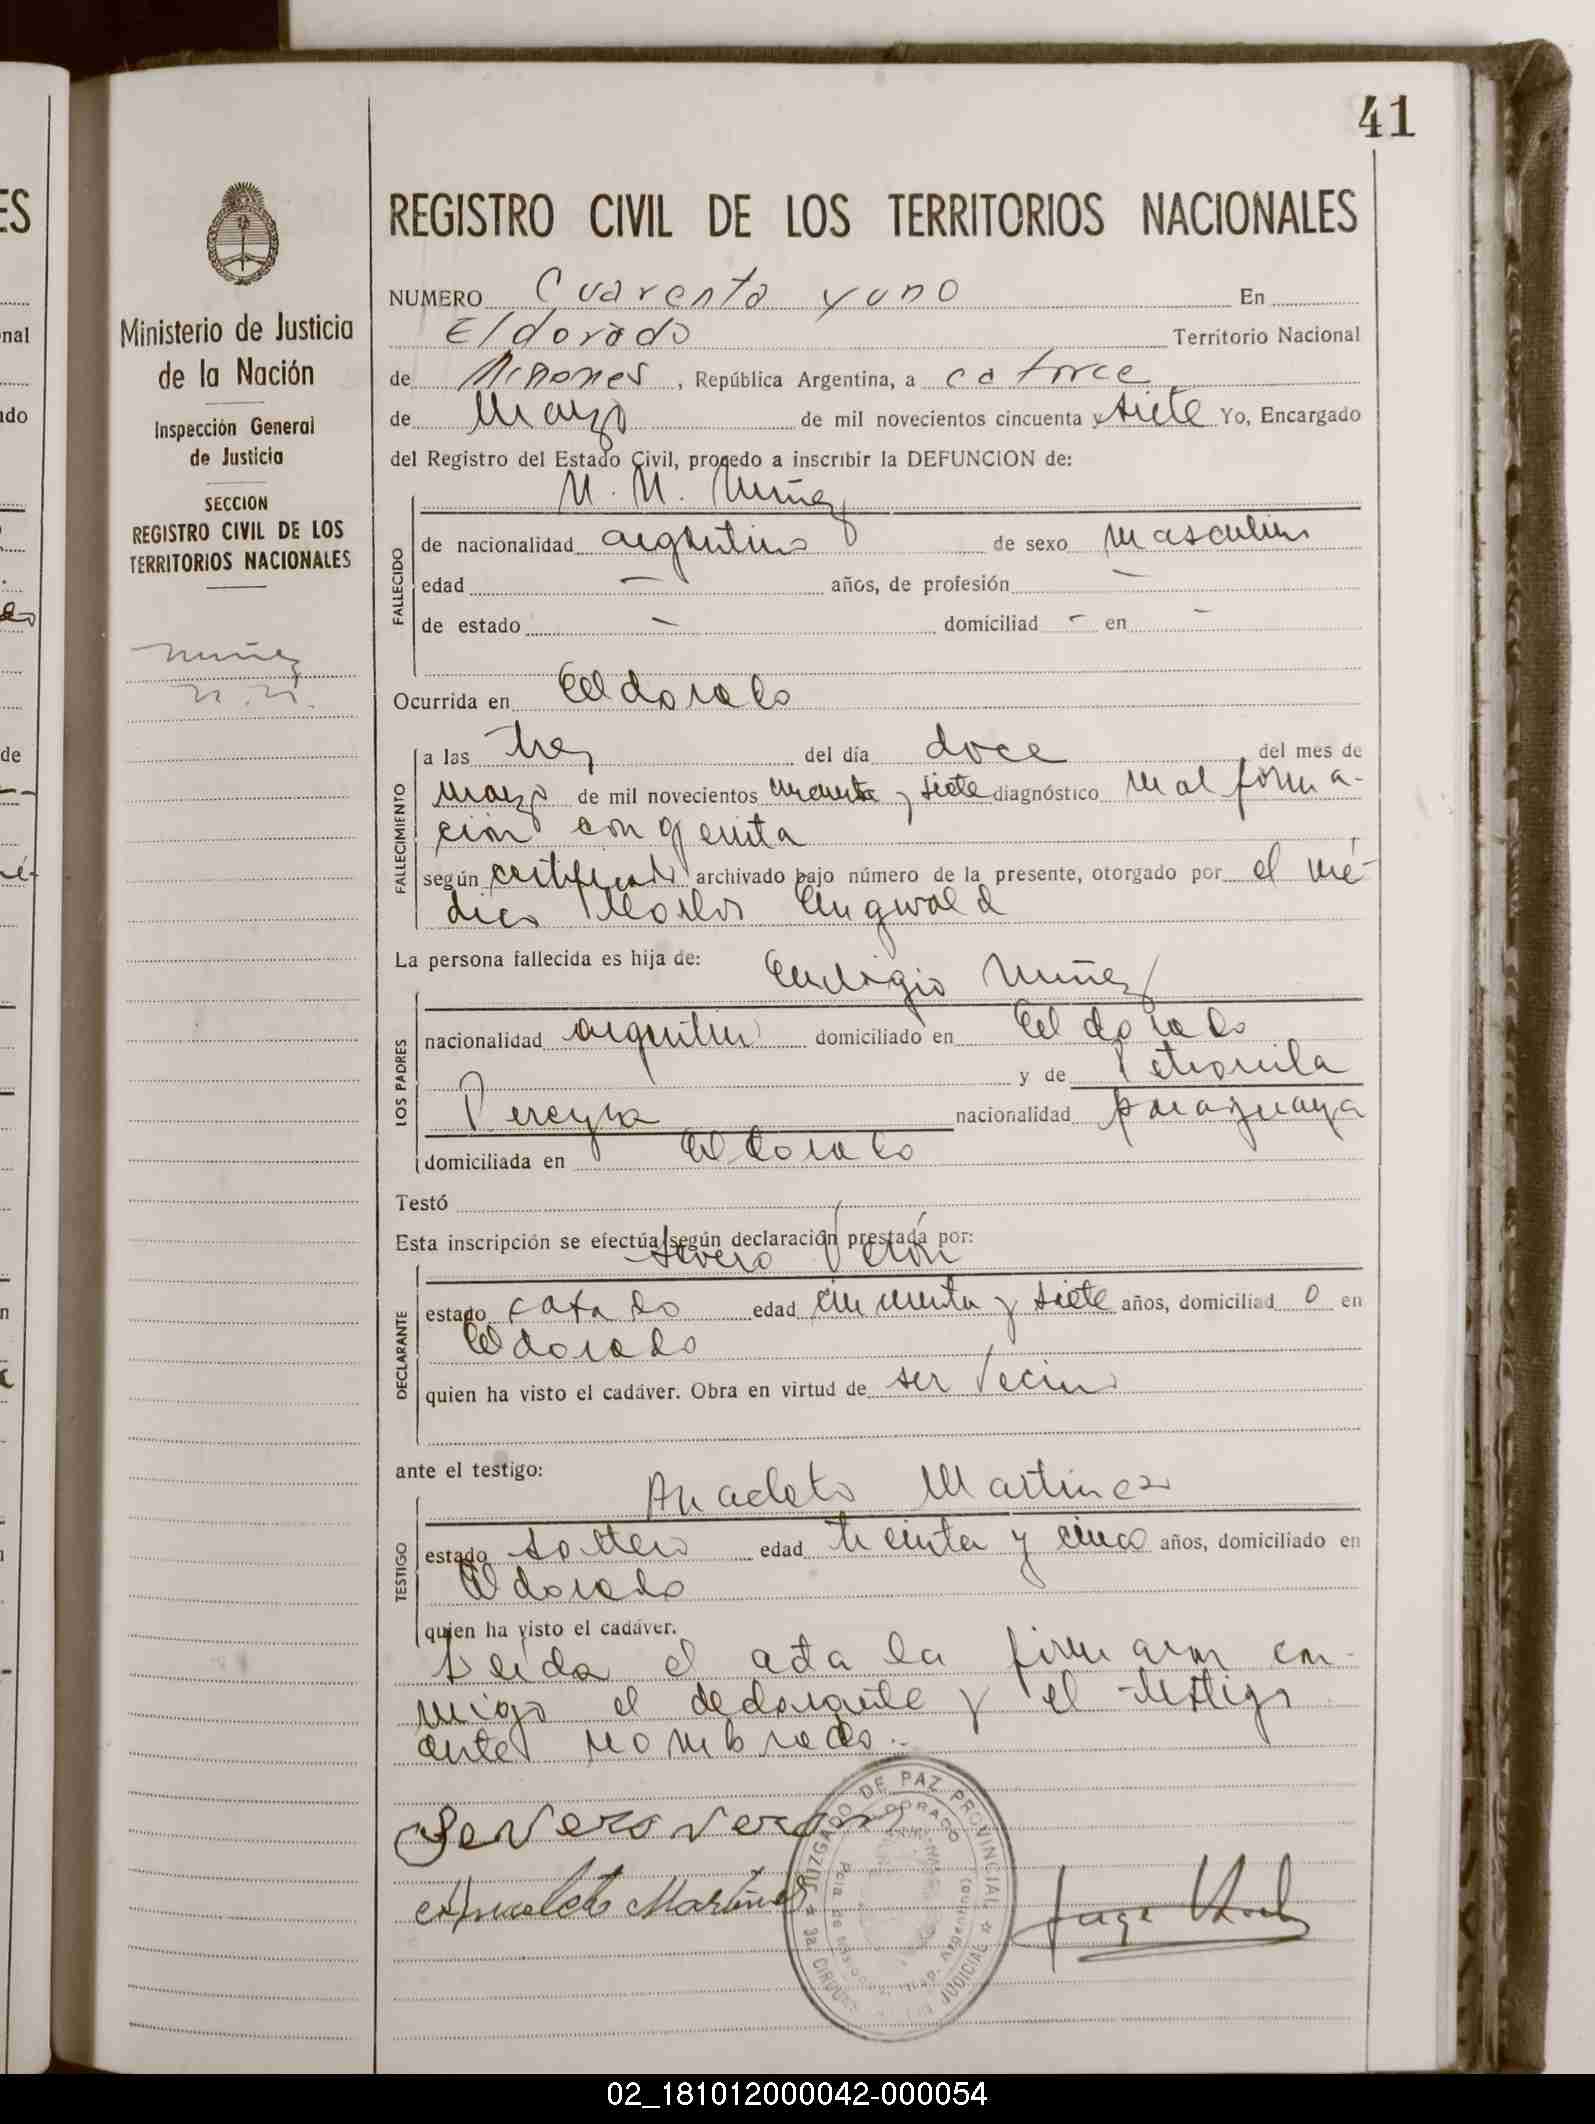 41
REGISTRO CIVIL DE LOS TERRITORIOS NACIONALES
Ministerio de Justicia
de la Nación
Inspección General
de Justicia
SECCION
REGISTRO CIVIL DE LOS
TERRITORIOS NACIONALES
Nuñez
N. N.
NUMERO Cuarenta y uno En
Eldorado Territorio Nacional
de Misiones, República Argentina, a catorce
de Marzo de mil novecientos cincuenta y siete Yo, Encargado
del Registro del Estado Civil, procedo a inscribir la DEFUNCION de:
N. N. Nuñez
FALLECIDO
de nacionalidad argentino de sexo masculino
edad — años, de profesión —
de estado — domiciliad - en -
Ocurrida en Eldorado
FALLECIMIENTO
a las tres del día doce del mes de
marzo de mil novecientos cincuenta y siete diagnóstico malforma-
ción congenita
según certificado archivado bajo número de la presente, otorgado por el mé-
dico
La persona fallecida es hija de:
Nuñez
LOS PADRES
nacionalidad argentino domiciliado en Eldorado
y de Petronila
Pereyra nacionalidad paraguaya
domiciliada en Eldorado
Testó
Esta inscripción se efectúa según declaración prestada por:
Severo Verón
DECLARANTE
estado casado edad cincuenta y siete años, domiciliad o en
Eldorado
quien ha visto el cadáver. Obra en virtud de ser vecino
ante el testigo:
Anacleto Martinez
TESTIGO
estado soltero edad treinta y cinco años, domiciliado en
Eldorado
quien ha visto el cadáver.
Leida el acta la firman con-
migo el declarante y el testigo
antes nombrado.-
Severo Veron
Anacleto Martinez
JUZGADO DE PAZ PROVINCIAL
ELDORADO
JUDICIAL
02_181012000042-000054